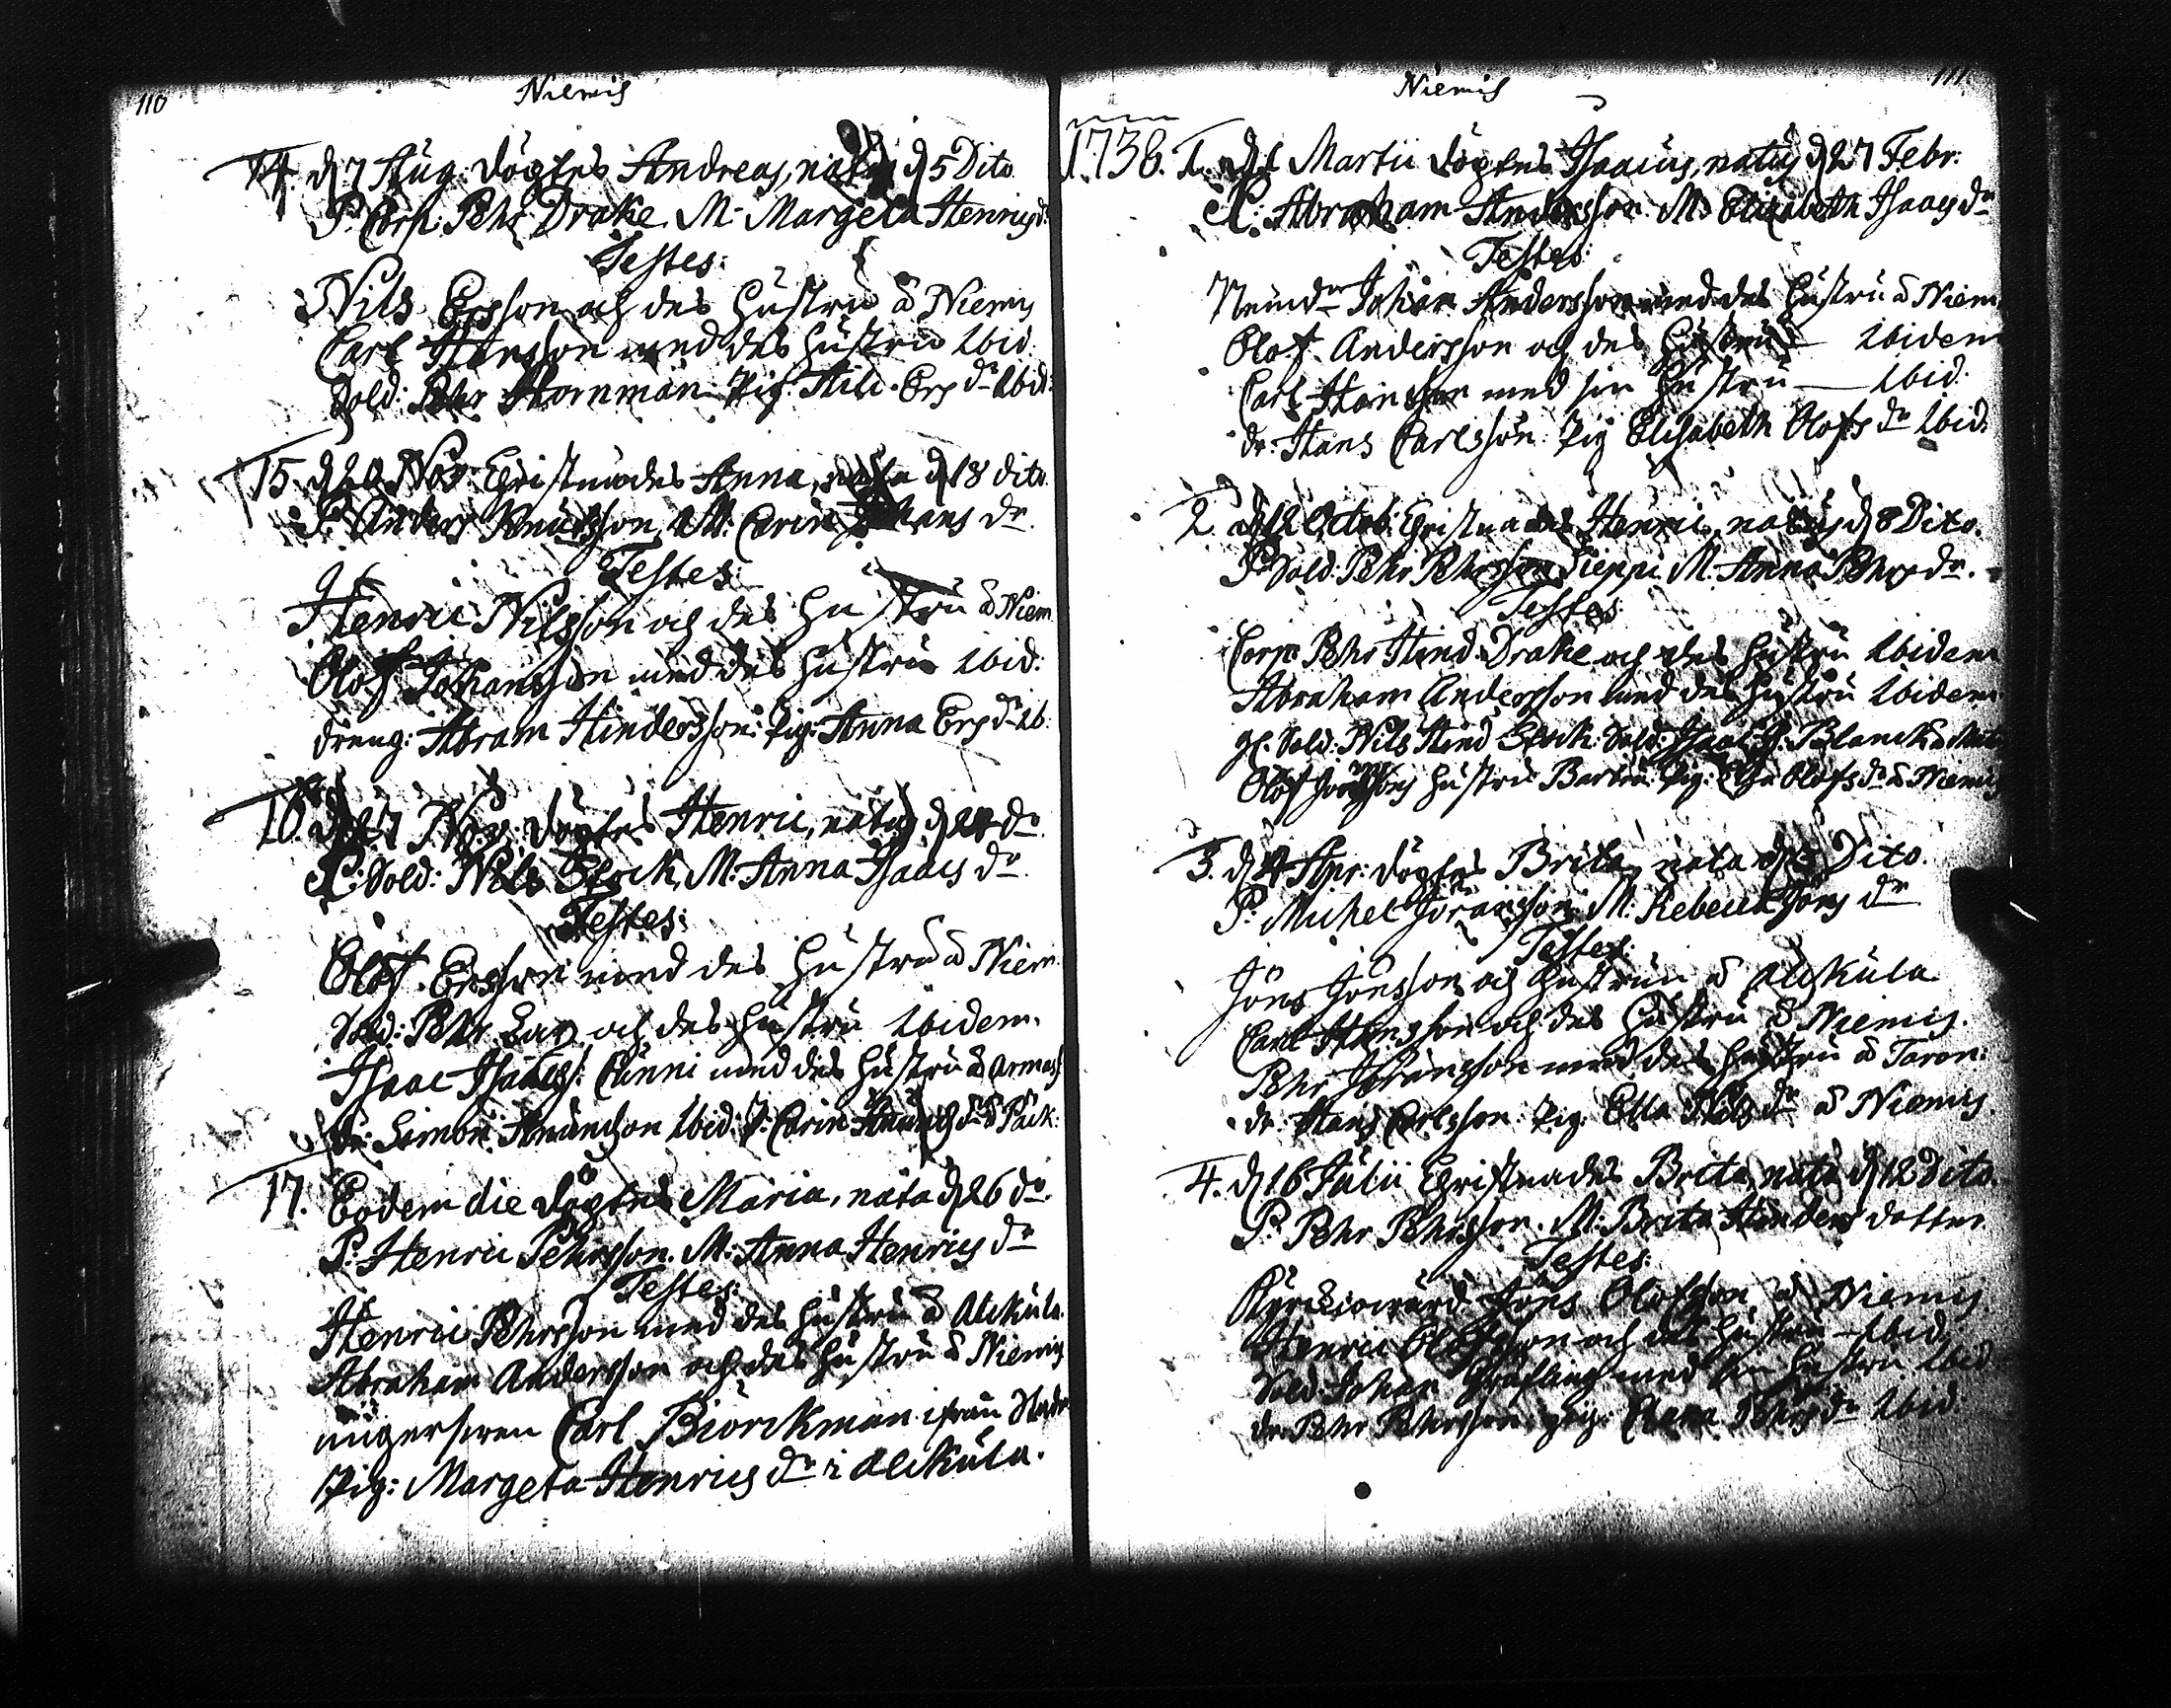 110
Niemis
14. d 7 Aug: döptes Andreas, natus d 5 Dito
P. Corp. Pehr Drake. M: Margeta Henricsdr
Testes:
Nils Ersson och des hustru å Niemis
Carl Hansson med des hustru Ibid
Sold: Pehr Hornman Pig: Ers dr Ibid:
15. d 20 Nov: Christnades Anna, nata d 18 dito
P. Anders Knutsson, M. Carin dr.
Testes
Henric Nilsson och des hustru å Niem
Olof Johansson med des hustru Ibid:
dreng: Abram Hindersson: Pig: Anna Ers dr Ib:
16. d 27 Nov: döptes Henric, natus d 24 do
P: Sold: Nils Stock, M: Anna Isaacs dr.
Testes:
Olof Ersson med des hustru å Niem
Sold: Pehr och des hustru Ibidem.
Isaac Isaacss: Cunni med des hustru å Armass
Dr: Simon Ibid: P: Carin dr å Päck:
17. Eodem die döptes Maria, nata d 26 do.
P: Henric Pehrsson. M: Anna Henrics dr
Testes:
Henric Pehrsson med des hustru å Alckula.
Abraham Andersson och des hustru å Niemis
ungersven Carl Biörckman ifrån
Pig: Margeta Henrics dr i Alckula.
111
Niemis
1738. 1. d 1 Martii döptes Isaacus, natus d 27 Febr:
P: Abraham Andersson. M: Elizabeth Isaacs dr
Testes:
Nemdn Johan Andersson med des hustru å Niem
Olof Andersson och des hustru — Ibidem
Carl Hansson med sin hustru — Ibid:
dr: Hans Carlsson. Pig Elisabeth Olofs dr Ibid:
2. d 12 Octob: Christnades Henric, natus d 8 Dito.
P: Sold: Pehr Pehrsson Lieppi. M. Anna Pehrs dr.
Testes
Corp: Pehr Hind: Drake och des hustru Ibidem
Abraham Andersson med des hustru Ibidem
gl. Sold: Nils Hind Stock: Sold: Isaac Blanck å
Olof hustru Barbru. Pig: Olofs dr å Niemis
3. d 4 Apr: döptes Brita, nata d 3 Dito.
P: Michel Göransson M: Rebecca Jöns dr
Testes:
Jöns Jönsson och hustrun å Alckula
Carl Hansson och des hustru å Niemis.
Pehr Göransson med des hustru å Taron:
dr: Hans Carlsson. Pig: Nils dr å Niemis
4. d 16 Julii Christnades Brita, nata d 12 Dito.
P: Pehr Pehrsson. M: Brita Hinders dotter
Testes:
Kyrckiowärd Jöns Olofsson å Niemis
Henric Olofsson och des hustru — Ibid:
Sold: Johan Gräfling med sin hustru Ibid
dr: Pehr Pehrsson. Pig: Pehrs dr Ibid: